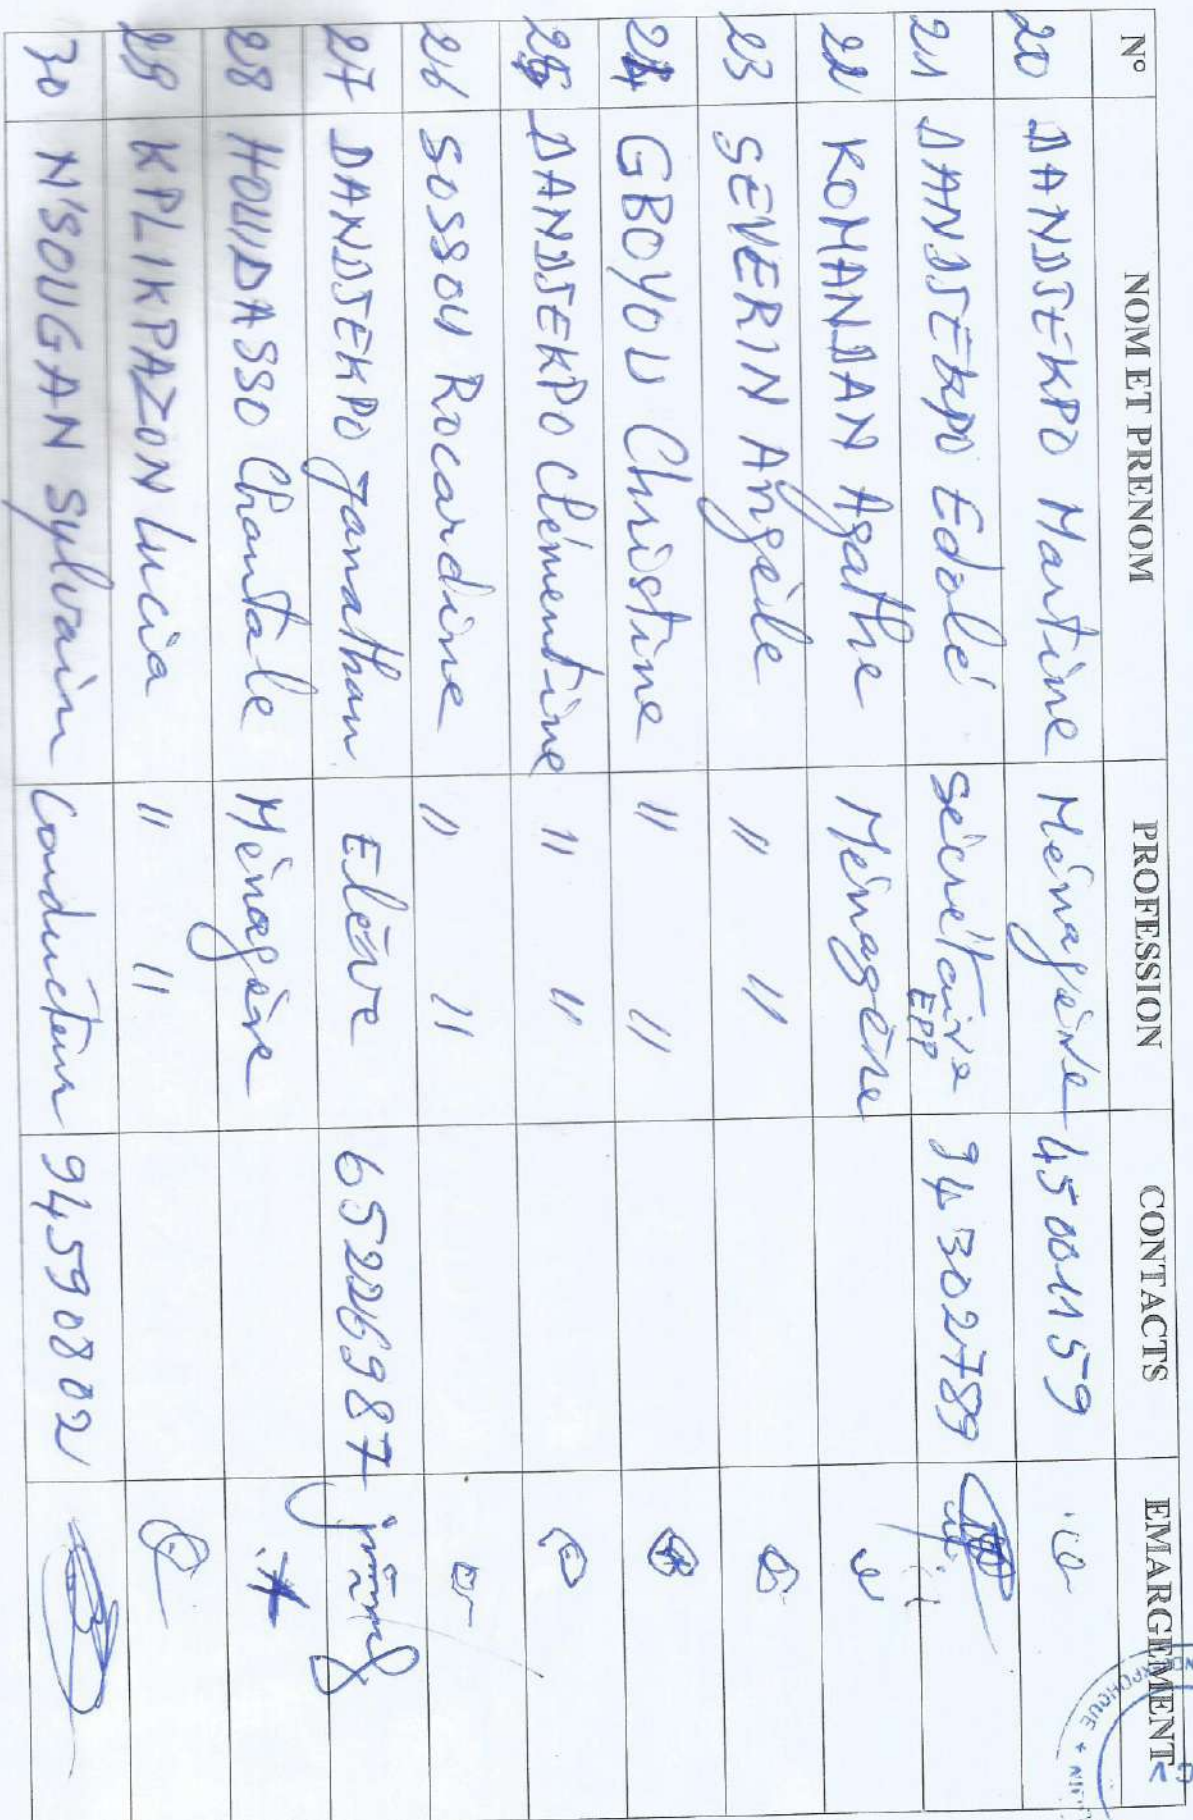 N° NOM ET PRENOM PROFESSION CONTACTS EMARGEMENT
20 DANDJEKPO Martine Ménagère 45001159
21 DANDJEKPO Edolé Sécrétaire EPP 94302789
22 KOMANDAN Agathe Ménagère
23 SEVERIN Angèle " "
24 GBOYOU Christine " "
25 DANDJEKPO Clémentine " "
26 SOSSOU Rocardine " "
27 DANDJEKPO Jonathan Elève 65226987
28 HOUIDASSO Chantale Ménagère
29 KPLIKPAZON Lucia " "
30 N'SOUGAN Sylvain Conducteur 94590802